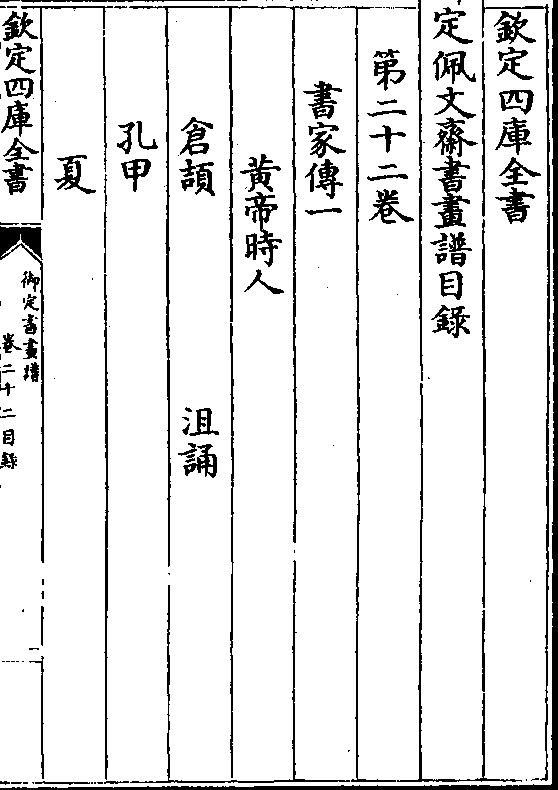 欽定四庫全書
定佩文齋書畫譜目錄
第二十二卷
書家傳一
黄帝時人
倉頡 沮誦
孔甲
夏
欽定四庫全書
御定書畫譜
卷二十二目錄
一